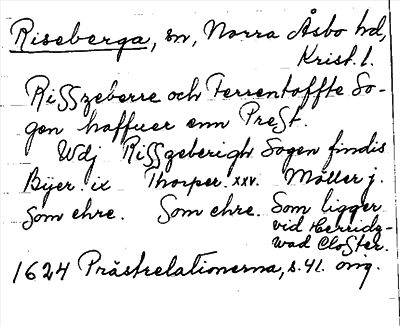 Riseberga, sn, Norra Åsbo hd,
Krist. l.
Risszeberre och Terrentoffte So-
gen haffuer enn Prest.
Wdj Rissgeberigh Sogen findis
Byer. ix Thorper. xxv. Möller j.
Som ehre. Som ehre. Som ligger
vid Herridz-
wad Closter.
1624 Prästrelationerna, s. 41. orig.